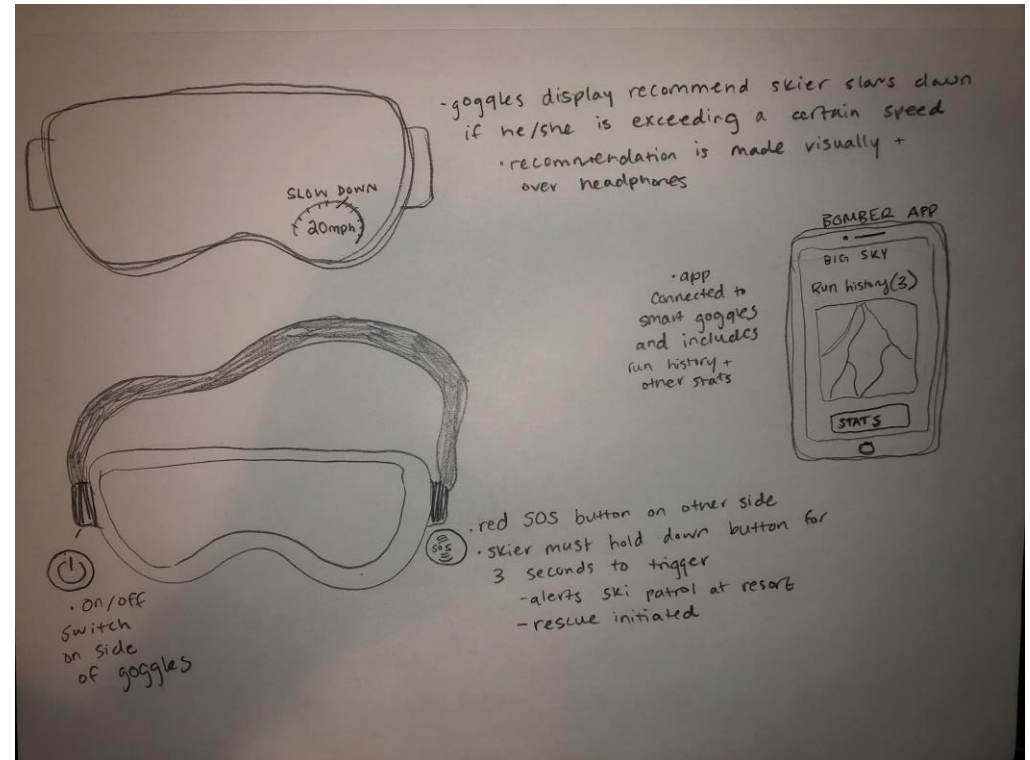 -goggles display recommend skier slows down
if he/she is exceeding a certain speed
• recommendation is made visually +
over headphones
SLOW DOWN
20mph
BOMBER APP
BIG SKY
Run history (3)
STATS
• app
connected to
smart goggles
and includes
run history +
other stats
• red SOS button on other side
• skier must hold down button for
3 seconds to trigger
-alerts ski patrol at resort
- rescue initiated
SOS
• on/off
switch
on side
of goggles